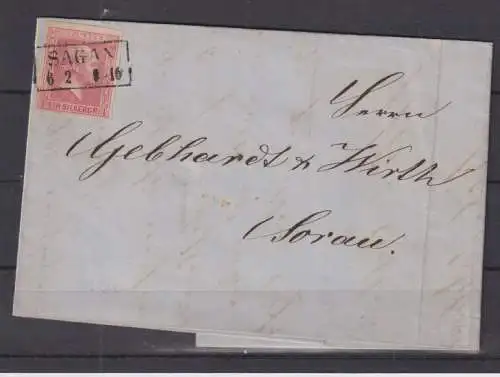 SAGAN
6 2
EIN SILBERGR.
Herrn
Gebhardt & Wirth
Sorau.